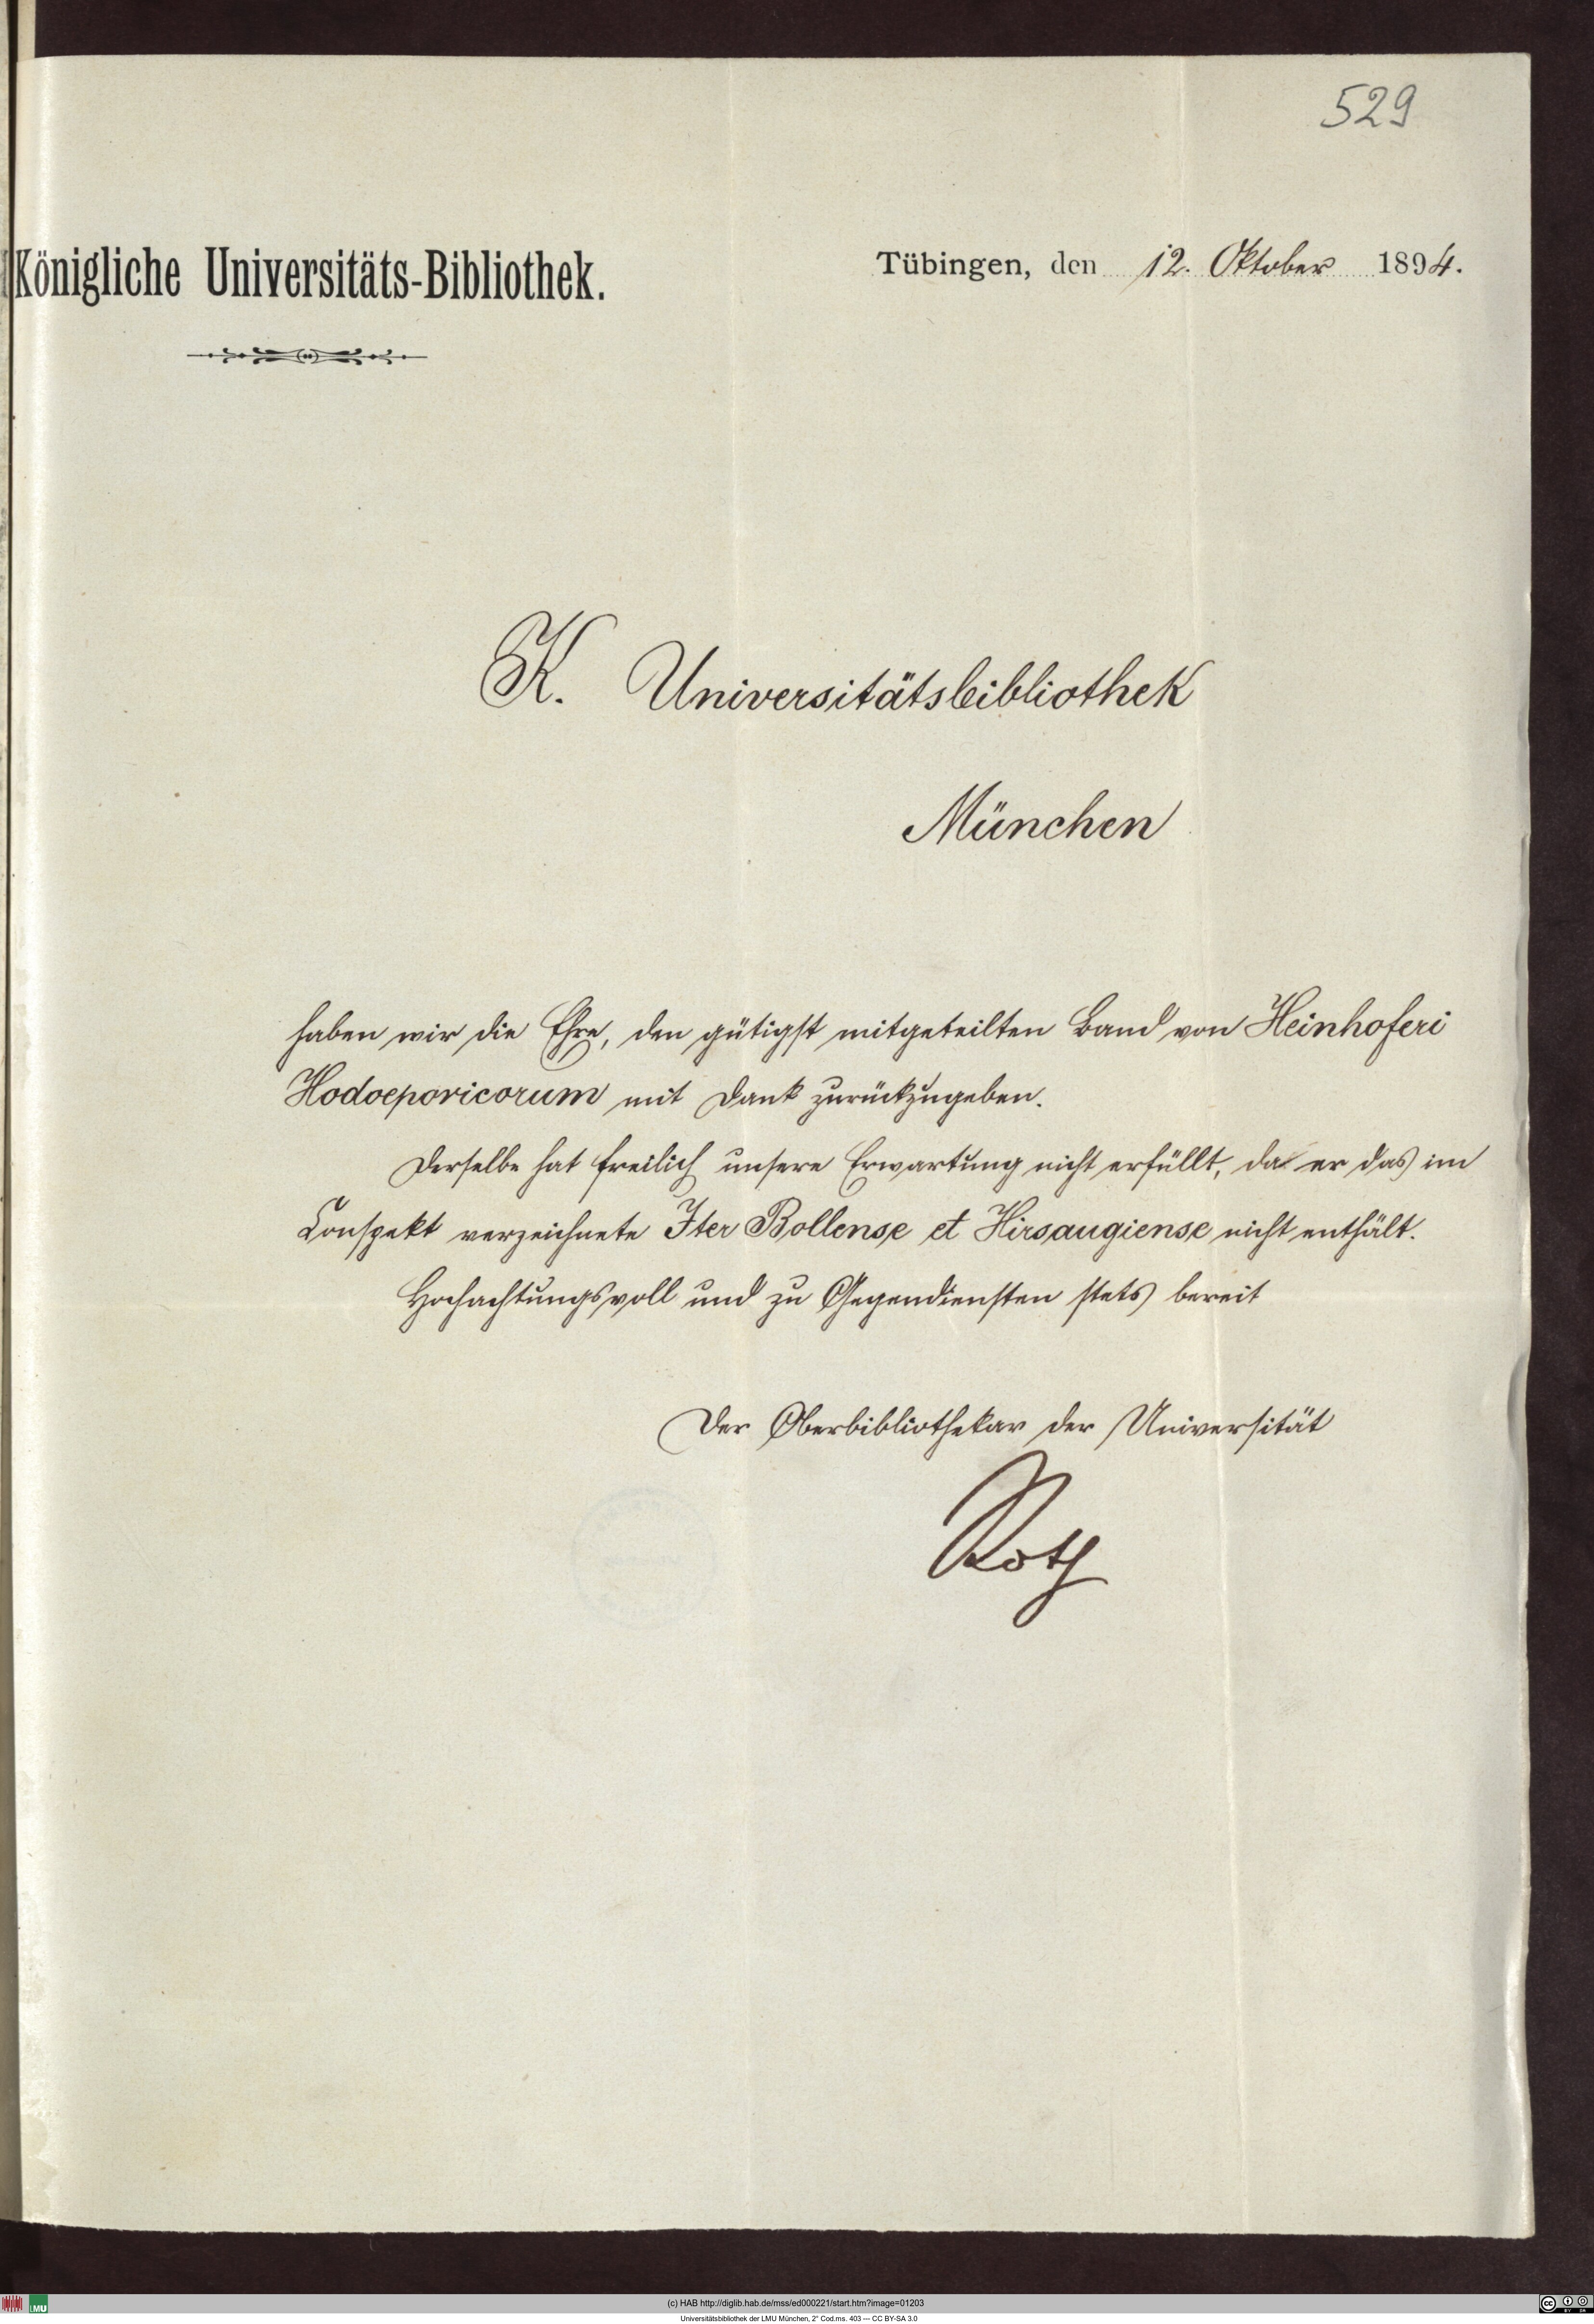 529
Königliche Universitäts-Bibliothek.
Tübingen, den 12. Oktober 1894.
K. Universitätsbibliothek
München
haben wir die Ehre, den gütigst mitgeteilten Band von Heinhoferi
Hodoeporicorum mit Dank zurückzugeben.
Derselbe hat freilich unsere Erwartung nicht erfüllt, da er das im
Conspekt verzeichnete Iter Bollense et Hirsaugiense nicht enthält.
Hochachtungsvoll und zu Gegendiensten stets bereit
Der Oberbibliothekar der Universität
Roth
LMU
(c) HAB http://diglib.hab.de/mss/ed000221/start.htm?image=01203
Universitätsbibliothek der LMU München, 2° Cod.ms. 403 — CC BY-SA 3.0